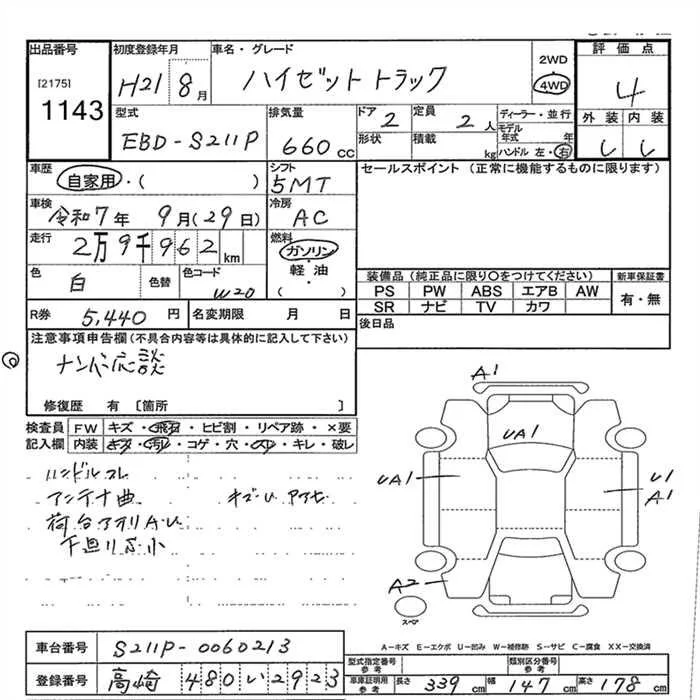 出品番号 [2175] 1143
初度登録年月 H21 8月
車名・グレード ハイゼットトラック
2WD 4WD
評価点 4
型式 EBD-S211P
排気量 660cc
ドア 2
形状
定員 2人
積載 kg
ディーラー・並行
モデル年式 年
ハンドル 左・右
外装 内装
車歴 自家用・( )
シフト 5MT
セールスポイント (正常に機能するものに限ります)
車検 令和7年 9月(29日)
冷房 AC
走行 2万9千962km
燃料 ガソリン
軽油
・( )
色 白 色替 色コード W20
装備品(純正品に限り〇をつけてください) 新車保証書
PS PW ABS エアB AW 有・無
SR ナビ TV カワ
R券 5,440円 名変期限 月 日
後日品
注意事項申告欄(不具合内容等は具体的に記入して下さい)
ナンバー応談
修復歴 有 [箇所 ]
検査員 FW キズ・飛石・ヒビ割・リペア跡・×要
記入欄 内装 キズ・汚れ・コゲ・穴・スレ・キレ・破レ
ハンドルスレ
アンテナ曲
荷台アオリA・U
下廻りサビ小
A1
UA1
UA1
U1
A1
A2
スペア
A－キズ E－エクボ U－凹み W－補修跡 S－サビ C－腐食 XX－交換済
車台番号 S211P-0060213
登録番号 高崎 480 い 2923
型式指定番号 参考 類別区分番号 参考
車庫証明用 参考 長さ 339cm 幅 147cm 高さ 178cm